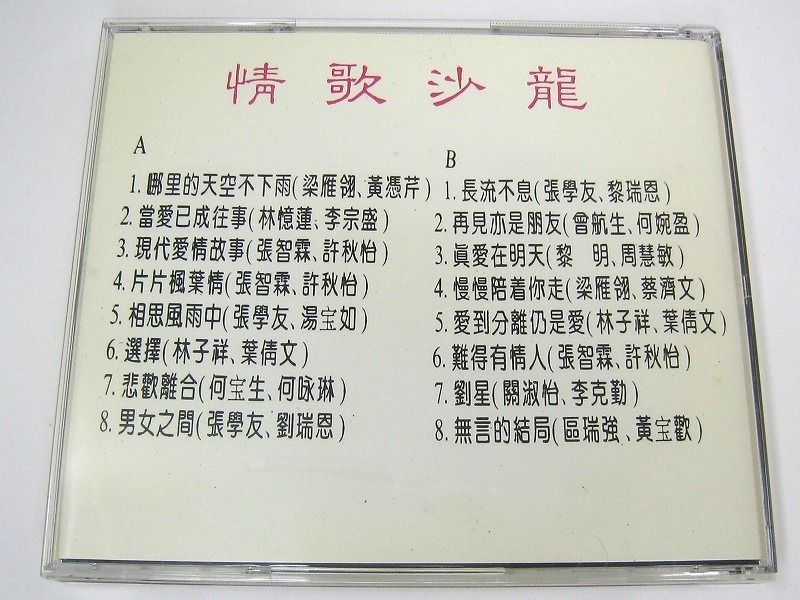 情歌沙龍
A
1. 哪里的天空不下雨(梁雁翎、黃憑芹)
2. 當愛已成往事(林憶蓮、李宗盛)
3. 現代愛情故事(張智霖、許秋怡)
4. 片片楓葉情(張智霖、許秋怡)
5. 相思風雨中(張學友、湯宝如)
6. 選擇(林子祥、葉倩文)
7. 悲歡離合(何宝生、何咏琳)
8. 男女之間(張學友、劉瑞恩)
B
1. 長流不息(張學友、黎瑞恩)
2. 再見亦是朋友(曾航生、何婉盈)
3. 眞愛在明天(黎 明、周慧敏)
4. 慢慢陪着你走(梁雁翎、蔡濟文)
5. 愛到分離仍是愛(林子祥、葉倩文)
6. 難得有情人(張智霖、許秋怡)
7. 劉星(關淑怡、李克勤)
8. 無言的結局(區瑞強、黃宝歡)